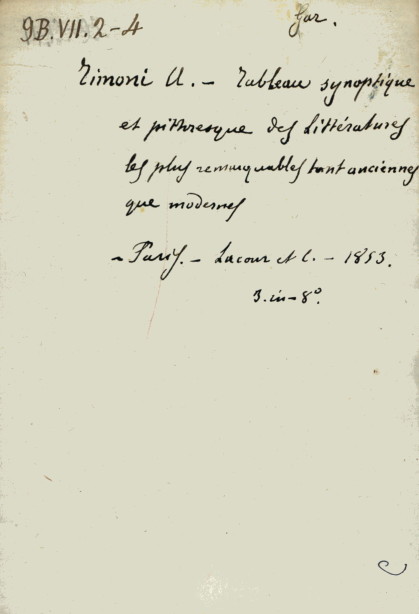 9B.VII.2-4
Gar.
Timoni A. - Tableau synoptique
et pittoresque des littératures
les plus remarquables tant anciennes
que modernes
- Paris. - Lacour et C. - 1853.
3. in-8°.